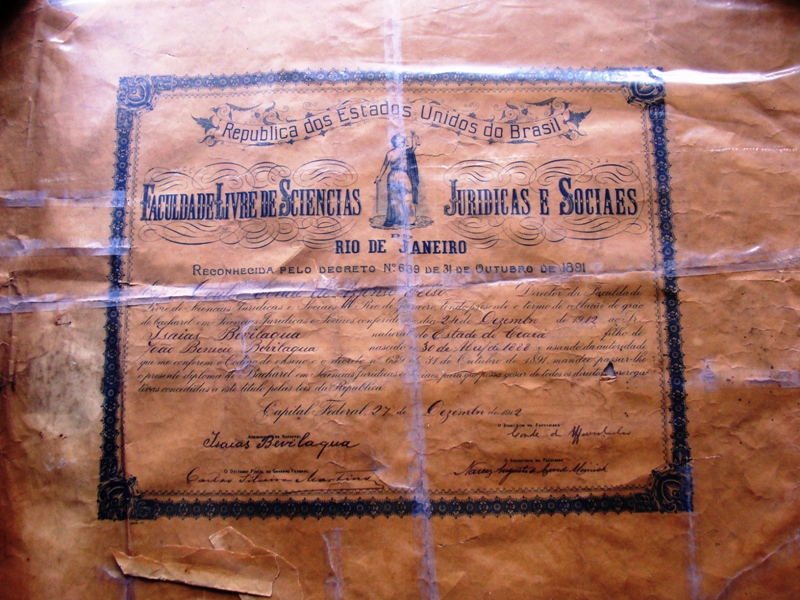 Republica dos Estados Unidos do Brasil
FACULDADE LIVRE DE SCIENCIAS JURIDICAS E SOCIAES
DO
RIO DE JANEIRO
RECONHECIDA PELO DECRETO Nº 639 DE 31 DE OUTUBRO DE 1891
Conde de Affonso Celso Director da Faculdade
Livre de Sciencias Juridicas e Sociaes do Rio de Janeiro, tendo presente o termo de collação do gráo
de bacharel em Sciencias Juridicas e Sociaes conferido no dia 24 de Dezembro de 1912
Isaias Bevilaqua natural do Estado do Ceará filho de
João Bevilaqua nascido 30 de de e usando da autoridade
que me confere o decreto 639 de 31 de Outubro de 1891, mandei passar-lhe
o presente diploma de Bacharel em Sciencias Juridicas e Sociaes para que possa gozar de todos os direitos e preroga-
tivas concedidas a este titulo pelas leis da Republica.
Capital Federal, 27 de Dezembro de 1912
O DIRECTOR DA FACULDADE
Isaias Bevilaqua
O SECRETARIO DA FACULDADE
O DELEGADO FISCAL DO GOVERNO FEDERAL
Carlos Martins